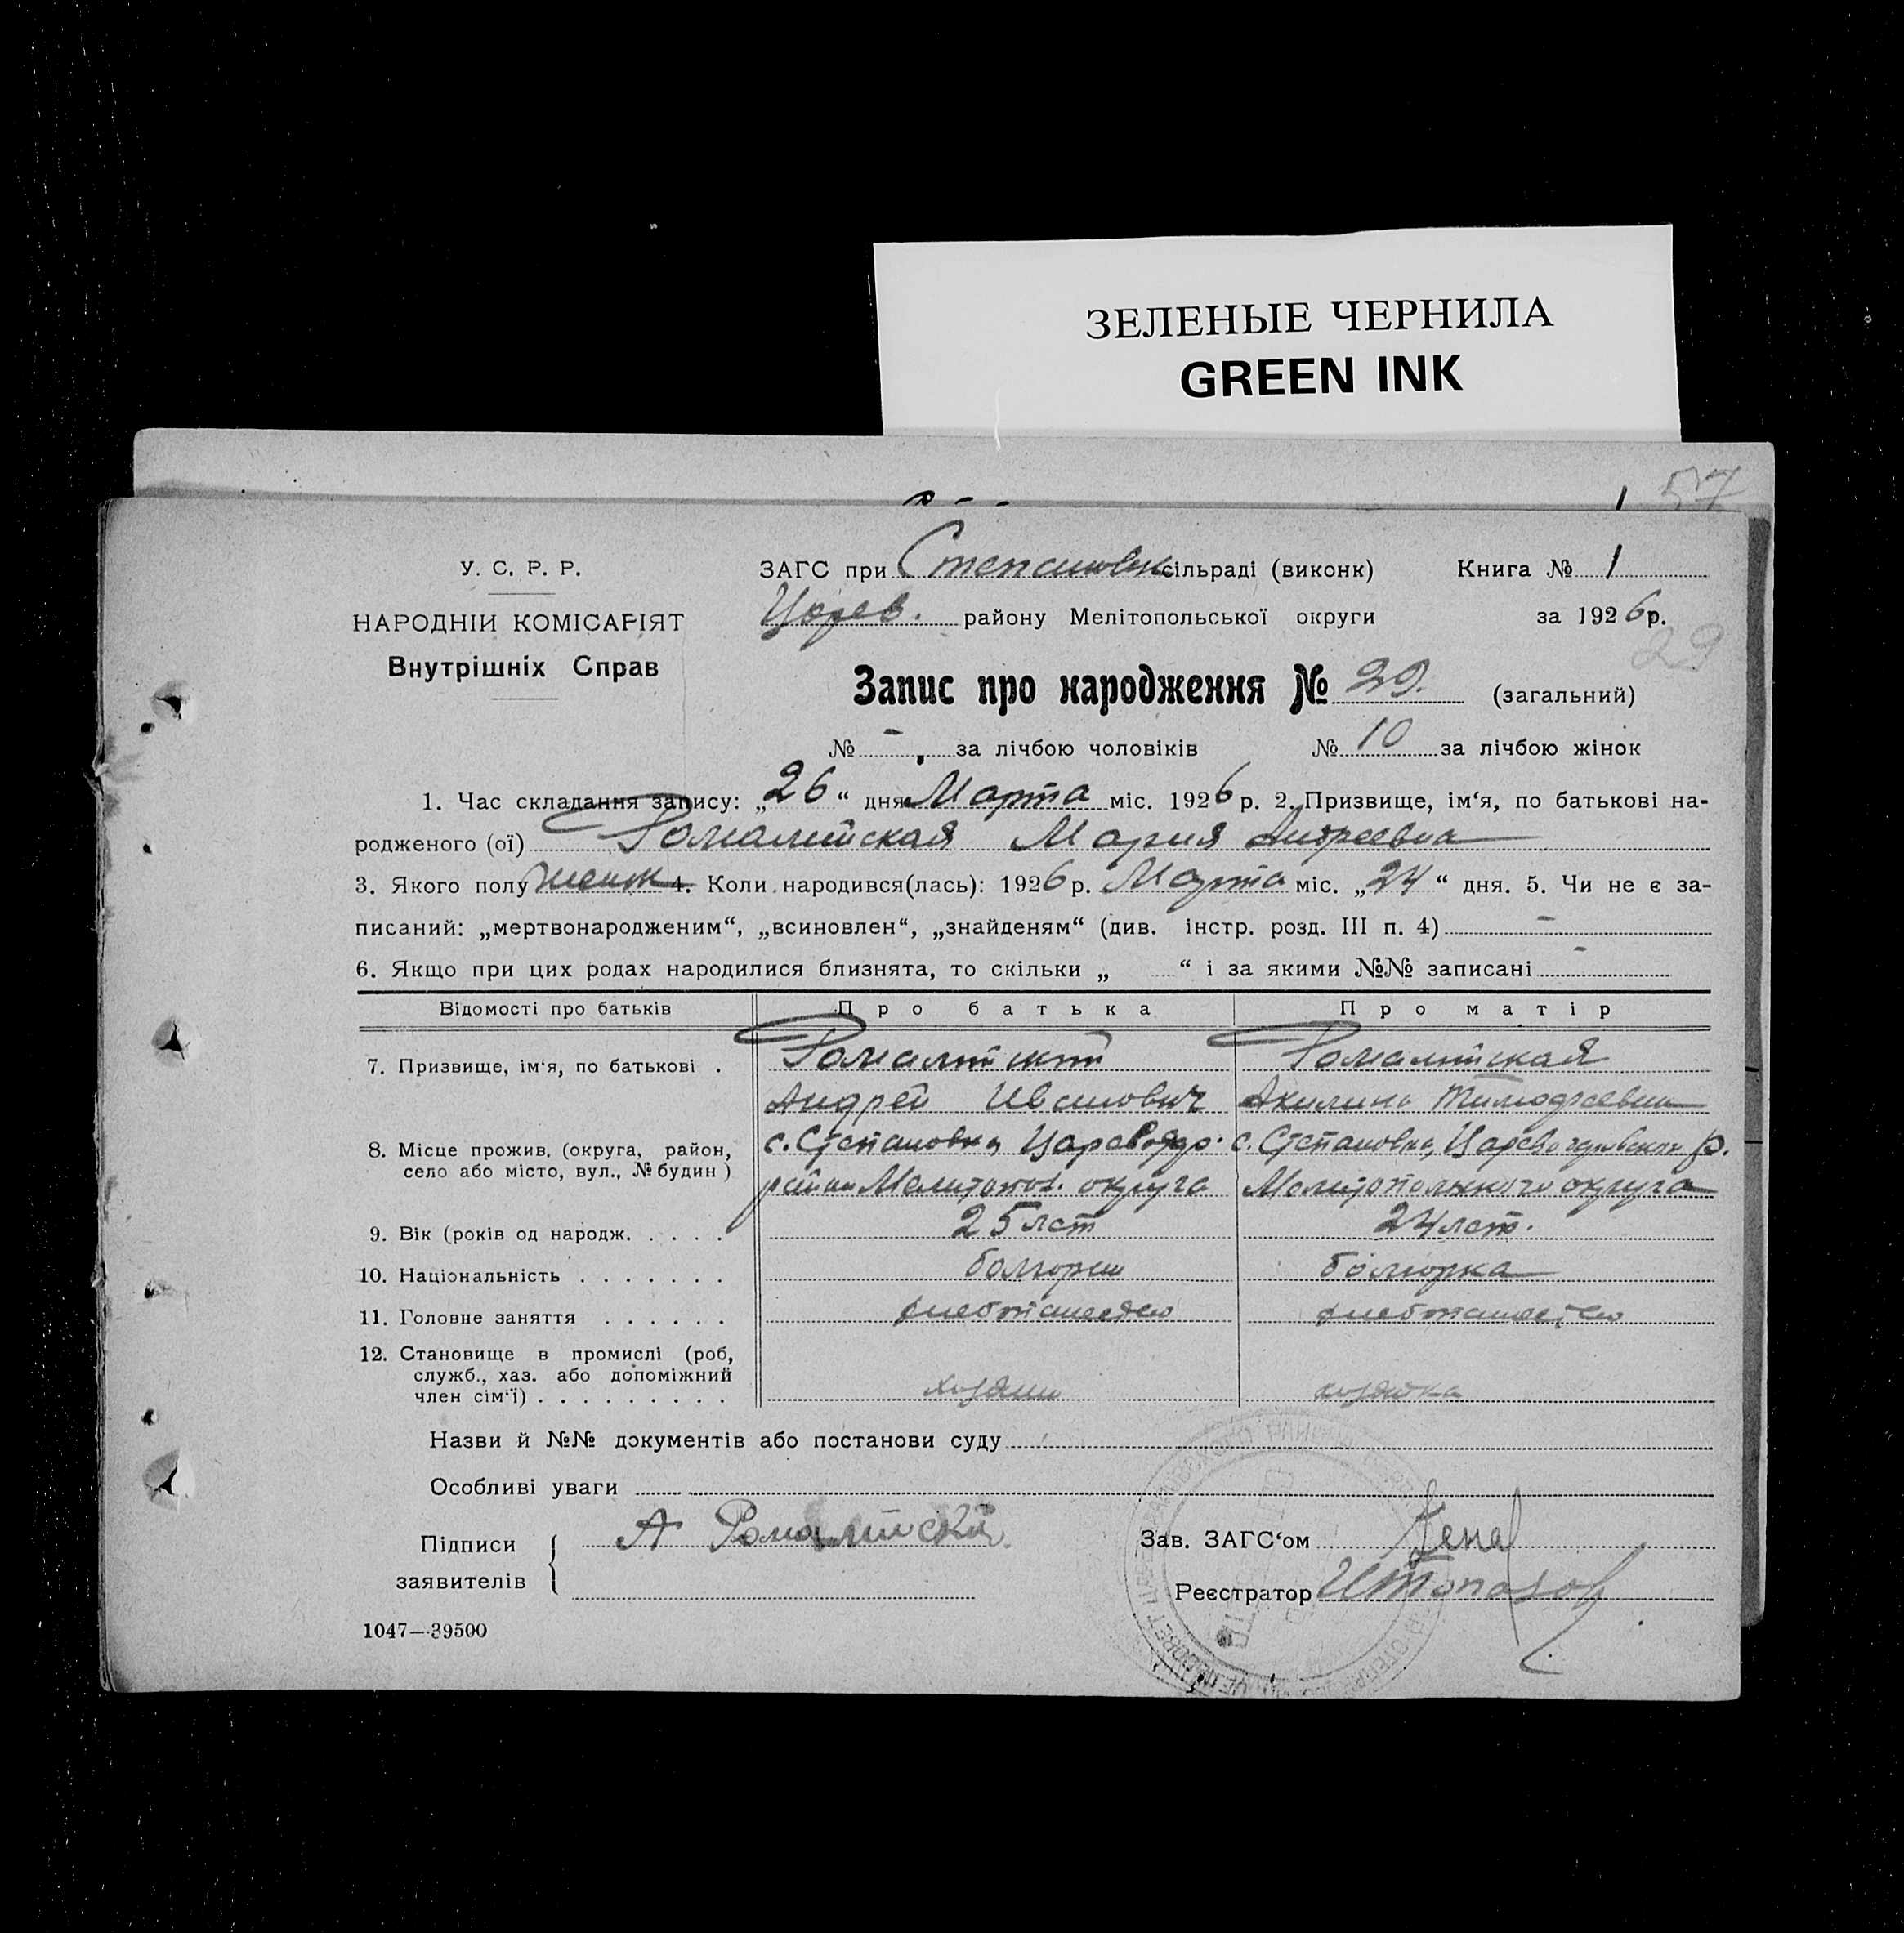 ЗЕЛЕНЫЕ ЧЕРНИЛА
GREEN INK
57
У. С. Р. Р.
НАРОДНІЙ КОМІСАРІЯТ
Внутрішніх Справ
ЗАГС при Степановк сільраді (виконк) Книга № 1
Царев. району Мелітопольської округи за 1926 р.
29
Запис про народження № 29. (загальний)
№ - за лічбою чоловіків № 10 за лічбою жінок
1. Час складання запису: „26“ дня Марта міс. 1926 р. 2. Призвище, ім‘я, по батькові на-
родженого (ої) Мария Андреевна
3. Якого полу женск 4. Коли народився(лась): 1926 р. Марта міс. „24“ дня. 5. Чи не є за-
писаний: „мертвонародженим“, „всиновлен“, „знайденям“ (див. інстр. розд. III п. 4) -
6. Якщо при цих родах народилися близнята, то скільки „ “ і за якими №№ записані -
Відомості про батьків Про батька Про матір
7. Призвище, ім‘я, по батькові .
Андрей Иванович Акилина Тимофеевна
8. Місце прожив. (округа, район, село або місто, вул., № будин)
с. Степановка, Цареводар. с. Степановка, Цареводаровского р.
района Мелитопол. округа Мелитопольского округа
9. Вік (років од народж. . . . . 25 лет 24 лет.
10. Національність . . . . . . . болгарин болгарка
11. Головне заняття . . . . . . хлебопашество хлебопашество
12. Становище в промислі (роб, служб., хаз. або допоміжний член сім‘ї) . . . . . . . . . хозяин хозяйка
Назви й №№ документів або постанови суду
Особливі уваги
Підписи заявителів А
Зав. ЗАГС‘ом
Реєстратор
1047—39500